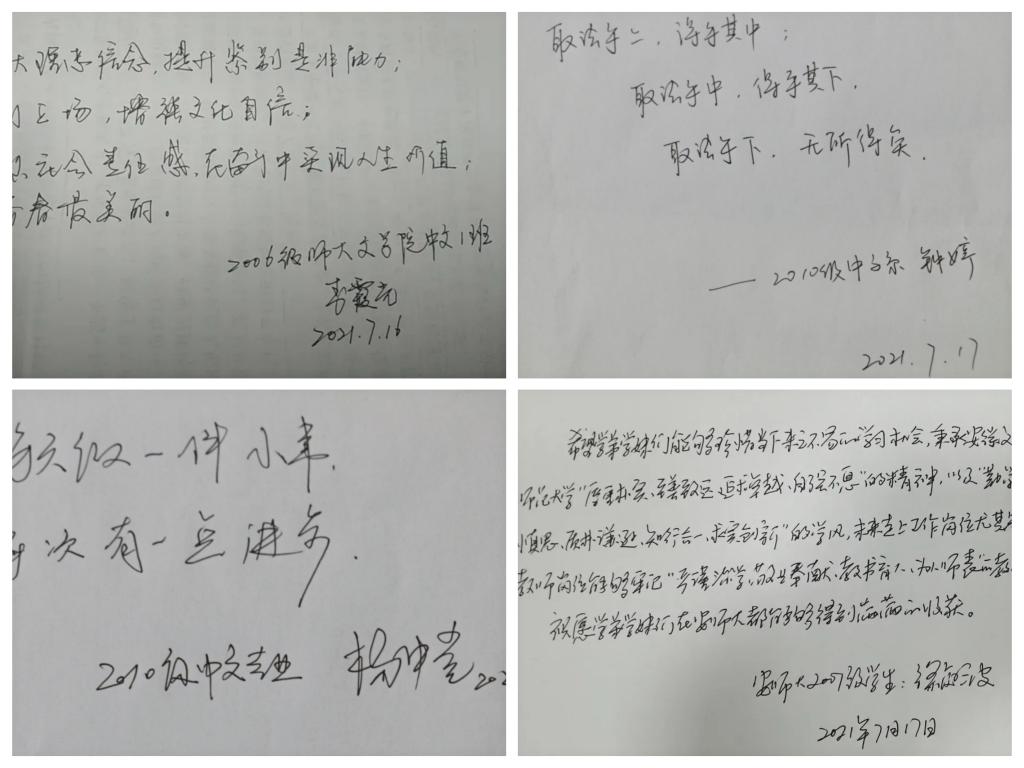 大理想信念，提升鉴别是非能力；
立场，增强文化自信；
社会责任感，在奋斗中实现人生价值；
青春最美丽。
2006级师大文学院中文1班
李霞
2021.7.16
取法于上，得乎其中；
取法于中，得乎其下，
取法于下，无所得矣．
—— 2010级中文系 钟婷
2021.7.17
每天做一件小事，
每次有一点进步．
2010级中文专业 杨仲 202
希望学弟学妹们能够珍惜当下来之不易的学习机会，秉承安徽
师范大学“厚重朴实、至善致远、追求卓越、自强不息”的精神，以及“勤学
慎思、质朴谦逊、知行合一、求实创新”的学风，未来走上工作岗位尤其
教师岗位能够牢记“严谨治学、敬业奉献、教书育人、为人师表”的教
祝愿学弟学妹们在安师大都能够得到满满的收获。
安师大2007级学生：徐波
2021年7月17日